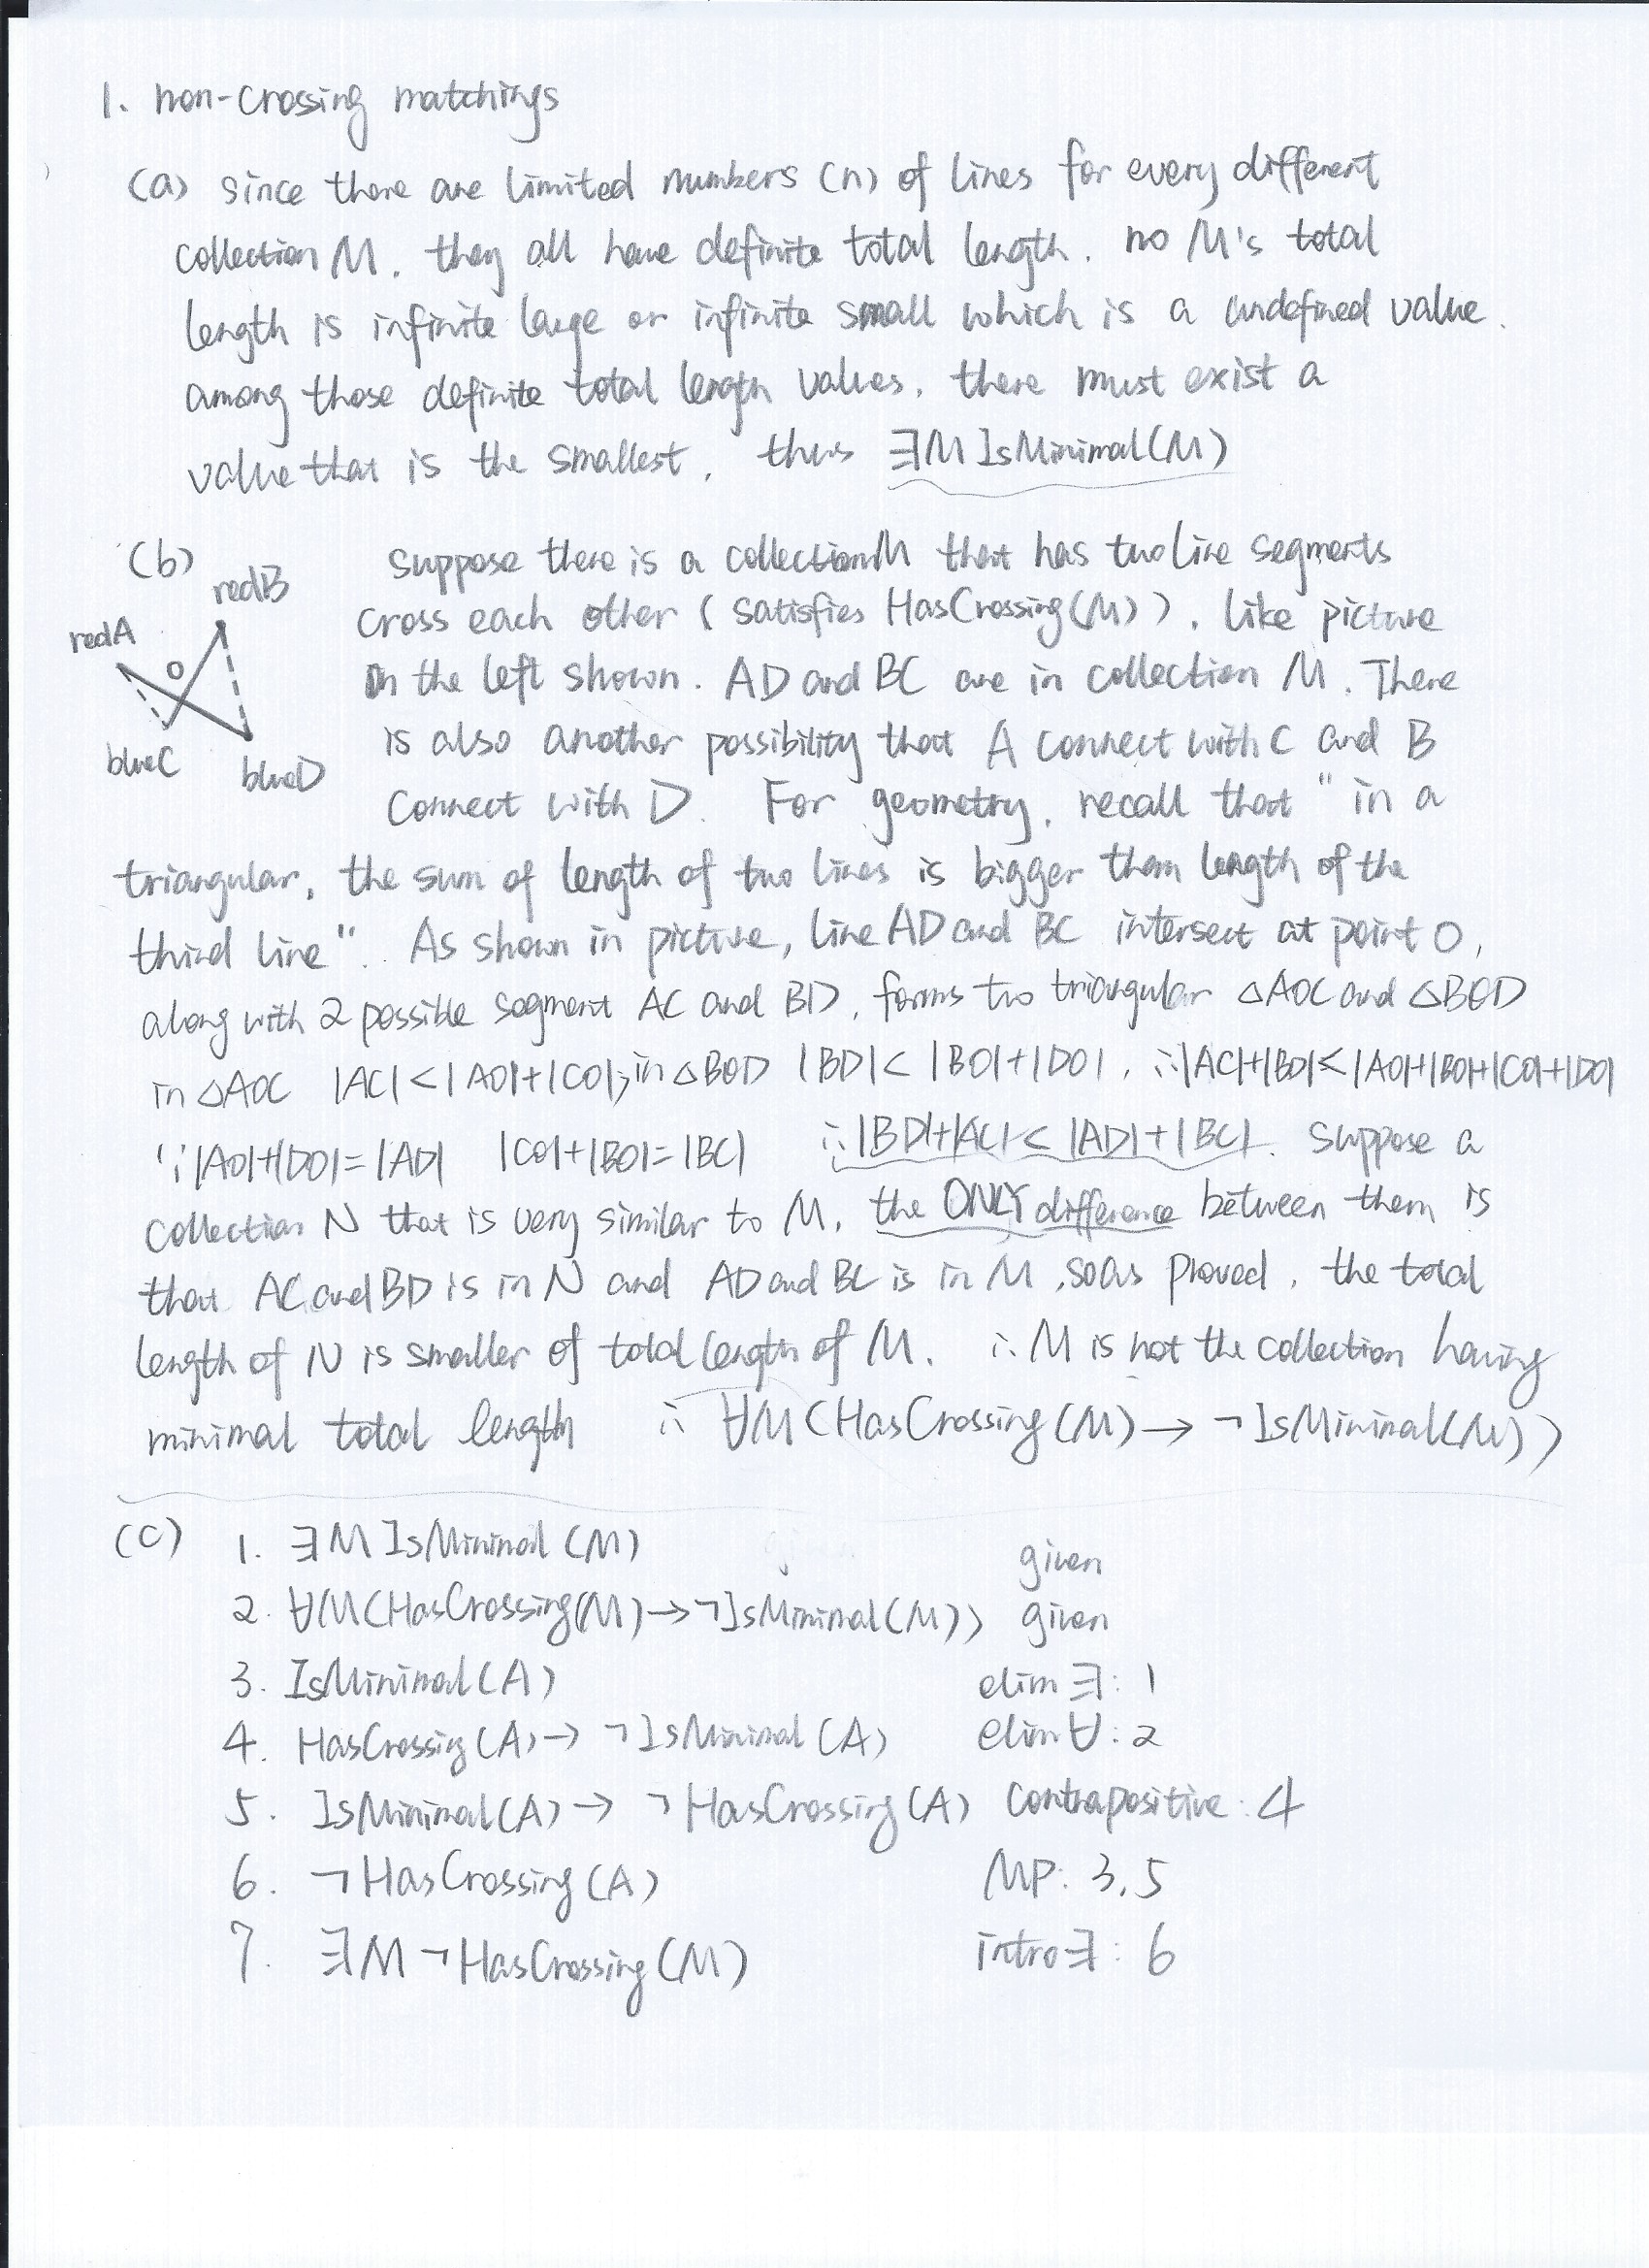 1. non-crossing matchings
(a) since there are limited numbers (n) of lines for every different
collection M. they all have definite total length. no M's total
length is infinite large or infinite small which is a undefined value.
among those definite total length values. there must exist a
value that is the smallest. thus ∃M IsMinimal(M)
(b) suppose there is a collection M that has two line segments
redB
cross each other (satisfies HasCrossing(M)). like picture
redA
O
on the left shown. AD and BC are in collection M. There
is also another possibility that A connect with C and B
blueC
blueD
connect with D. For geometry, recall that "in a
triangular, the sum of length of two lines is bigger than length of the
third line". As shown in picture, line AD and BC intersect at point O,
along with 2 possible segment AC and BD, forms two triangular △AOC and △BOD
in △AOC |AC|<|AO|+|CO|; in △BOD |BD|<|BO|+|DO|. ∴|AC|+|BD|<|AO|+|BO|+|CO|+|DO|
∵|AO|+|DO|=|AD| |CO|+|BO|=|BC| ∴|BD|+|AC|<|AD|+|BC|. Suppose a
collection N that is very similar to M, the ONLY difference between them is
that AC and BD is in N and AD and BC is in M, so as proved, the total
length of N is smaller of total length of M. ∴ M is not the collection having
minimal total length ∴ ∀M(HasCrossing(M) → ¬IsMinimal(M))
(c) 1. ∃M IsMinimal(M) given
2. ∀M(HasCrossing(M) → ¬IsMinimal(M)) given
3. IsMinimal(A) elim ∃: 1
4. HasCrossing(A) → ¬IsMinimal(A) elim ∀: 2
5. IsMinimal(A) → ¬HasCrossing(A) contrapositive: 4
6. ¬HasCrossing(A) MP: 3,5
7. ∃M ¬HasCrossing(M) intro ∃: 6